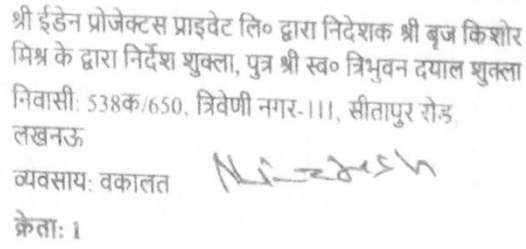 श्री ईडेन प्रोजेक्टस प्राइवेट लि० द्वारा निदेशक श्री बृज किशोर
मिश्र के द्वारा निर्देश शुक्ला, पुत्र श्री स्व० त्रिभुवन दयाल शुक्ला
निवासी: 538क/650, त्रिवेणी नगर-111, सीतापुर रोड,
लखनऊ
व्यवसाय: वकालत
क्रेता: 1